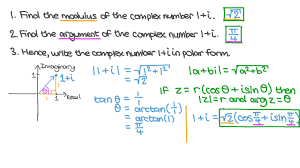 1. Find the modulus of the complex number 1+i. √2
2. Find the argument of the complex number 1+i. π/4
3. Hence, write the complex number 1+i in polar form.
Imaginary
1
1+i
θ
1
1
Real
|1+i| = √(1²+1²)
= √2
tanθ = 1/1
θ = arctan(1/1)
= arctan(1)
= π/4
|a+bi| = √(a²+b²)
if z = r(cosθ+isinθ) then
|z| = r and arg z = θ
1+i = √2(cos π/4 + isin π/4)